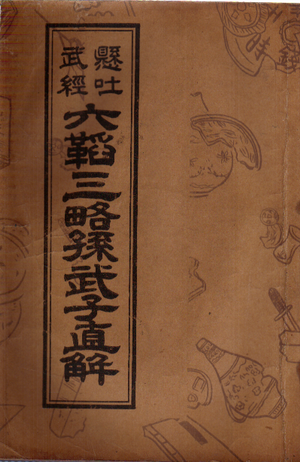 懸吐
武經
六韜三略孫武子直解